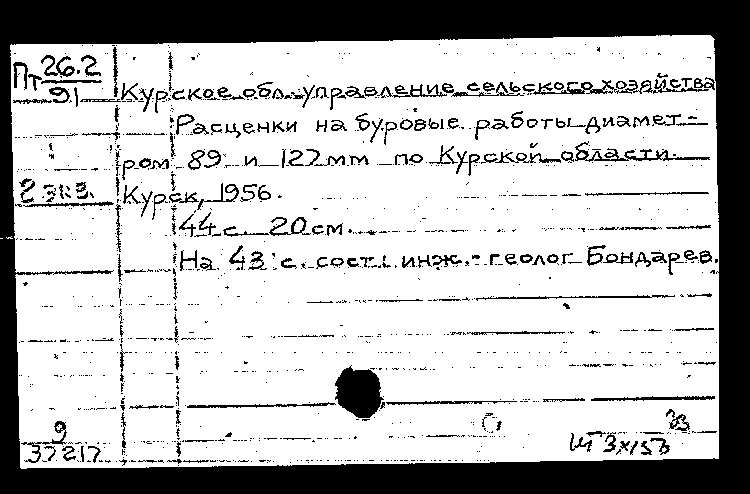 Пт 26.2
91
Курское обл. управление сельского хозяйства
Расценки на буровые работы диамет-
ром 89 и 127 мм по Курской области.
2 экз.
Курск, 1956.
44 с. 20 см.
На 43 с. сост: инж.-геолог Бондарев.
9
37217